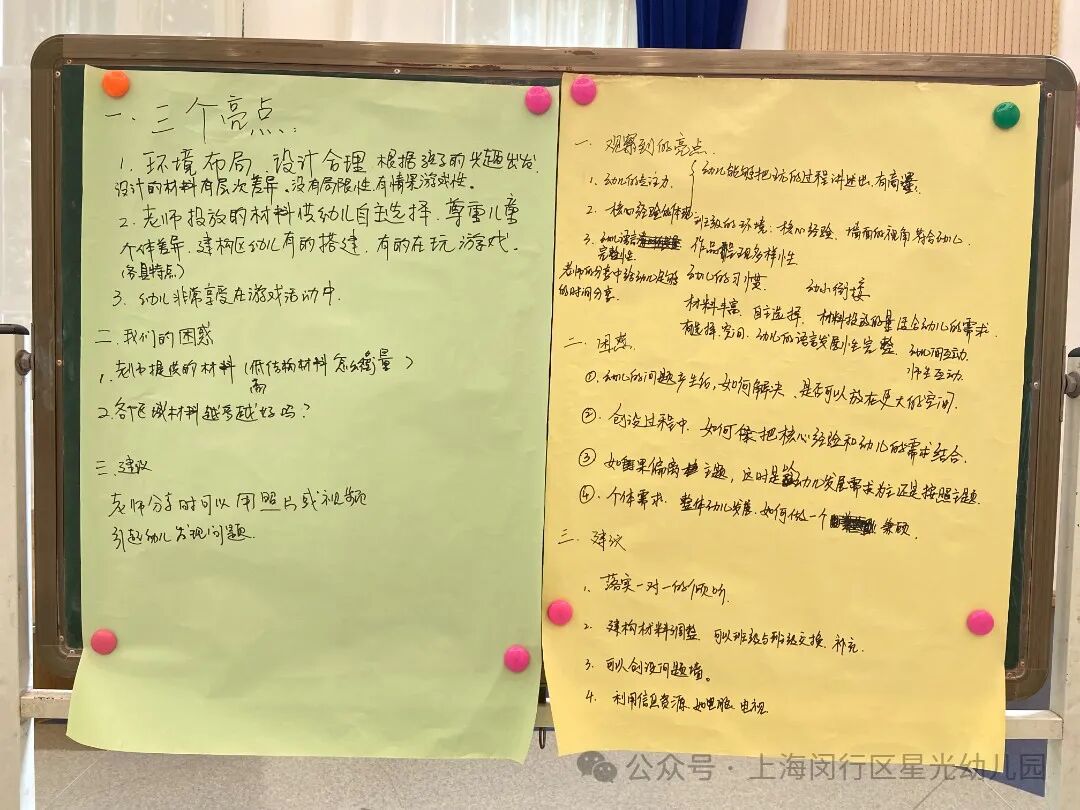 一、三个亮点:
1. 环境布局、设计合理 根据孩子的兴趣出发
设计的材料有层次差异、没有局限性,有情景游戏性.
2. 老师投放的材料供幼儿自主选择,尊重儿童
个体差异,建构区幼儿有的搭建,有的在玩游戏.
3. 幼儿非常享受在游戏活动中.
二、我们的困惑
1. 老师提供的材料(低结构材料怎么衡量)
高
2. 各个区域材料越多越好吗?
三、建议
老师分享时可以用照片或视频
引起幼儿发现问题.
一. 观察到的亮点.
1. 幼儿的专注力. 幼儿能够把玩的过程讲述出,有
2. 核心经验的体现 班级的环境、核心经验、墙面的视角符合幼儿.
3. 幼儿语言 作品呈现多样性
完整性
老师的分享中给幼儿足够 幼儿的习惯 幼小衔接
的时间分享. 材料丰富、自主选择, 材料投放的量适合幼儿的需求.
有选择空间、幼儿的语言发展比完整 幼儿间互动.
师生互动.
二. 困惑.
①. 幼儿的问题产生后,如何解决、是否可以放在更大的空间.
②. 创设过程中,如何把核心经验和幼儿的需求结合.
③ 如果偏离主题,这时是幼儿发展需求为主还是按照主题.
④. 个体需求、整体幼儿发展,如何做一个兼顾.
三. 建议
1. 落实一对一的倾听.
2. 建构材料调整、可以班级与班级交换、补充.
3. 可以创设问题墙。
4. 利用信息资源、如电脑、电视
公众号·上海闵行区星光幼儿园